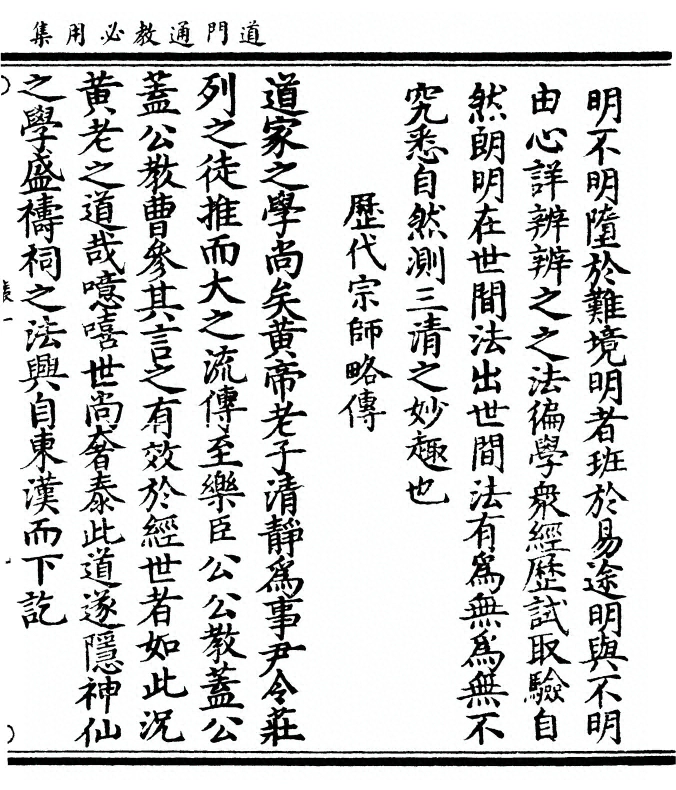 道門通教必用集
明不明墮於難境明者班於易途明與不明
由心詳辨辨之之法徧學衆經歷試取驗自
然朗明在世間法出世間法有爲無爲無不
究悉自然測三清之妙趣也
歷代宗師略傳
道家之學尚矣黄帝老子清靜爲事尹令莊
列之徒推而大之流傳至樂臣公公教蓋公
蓋公教曹參其言之有效於經世者如此況
黄老之道哉噫嘻世尚奢泰此道遂隱神仙
之學盛禱祠之法興自東漢而下訖